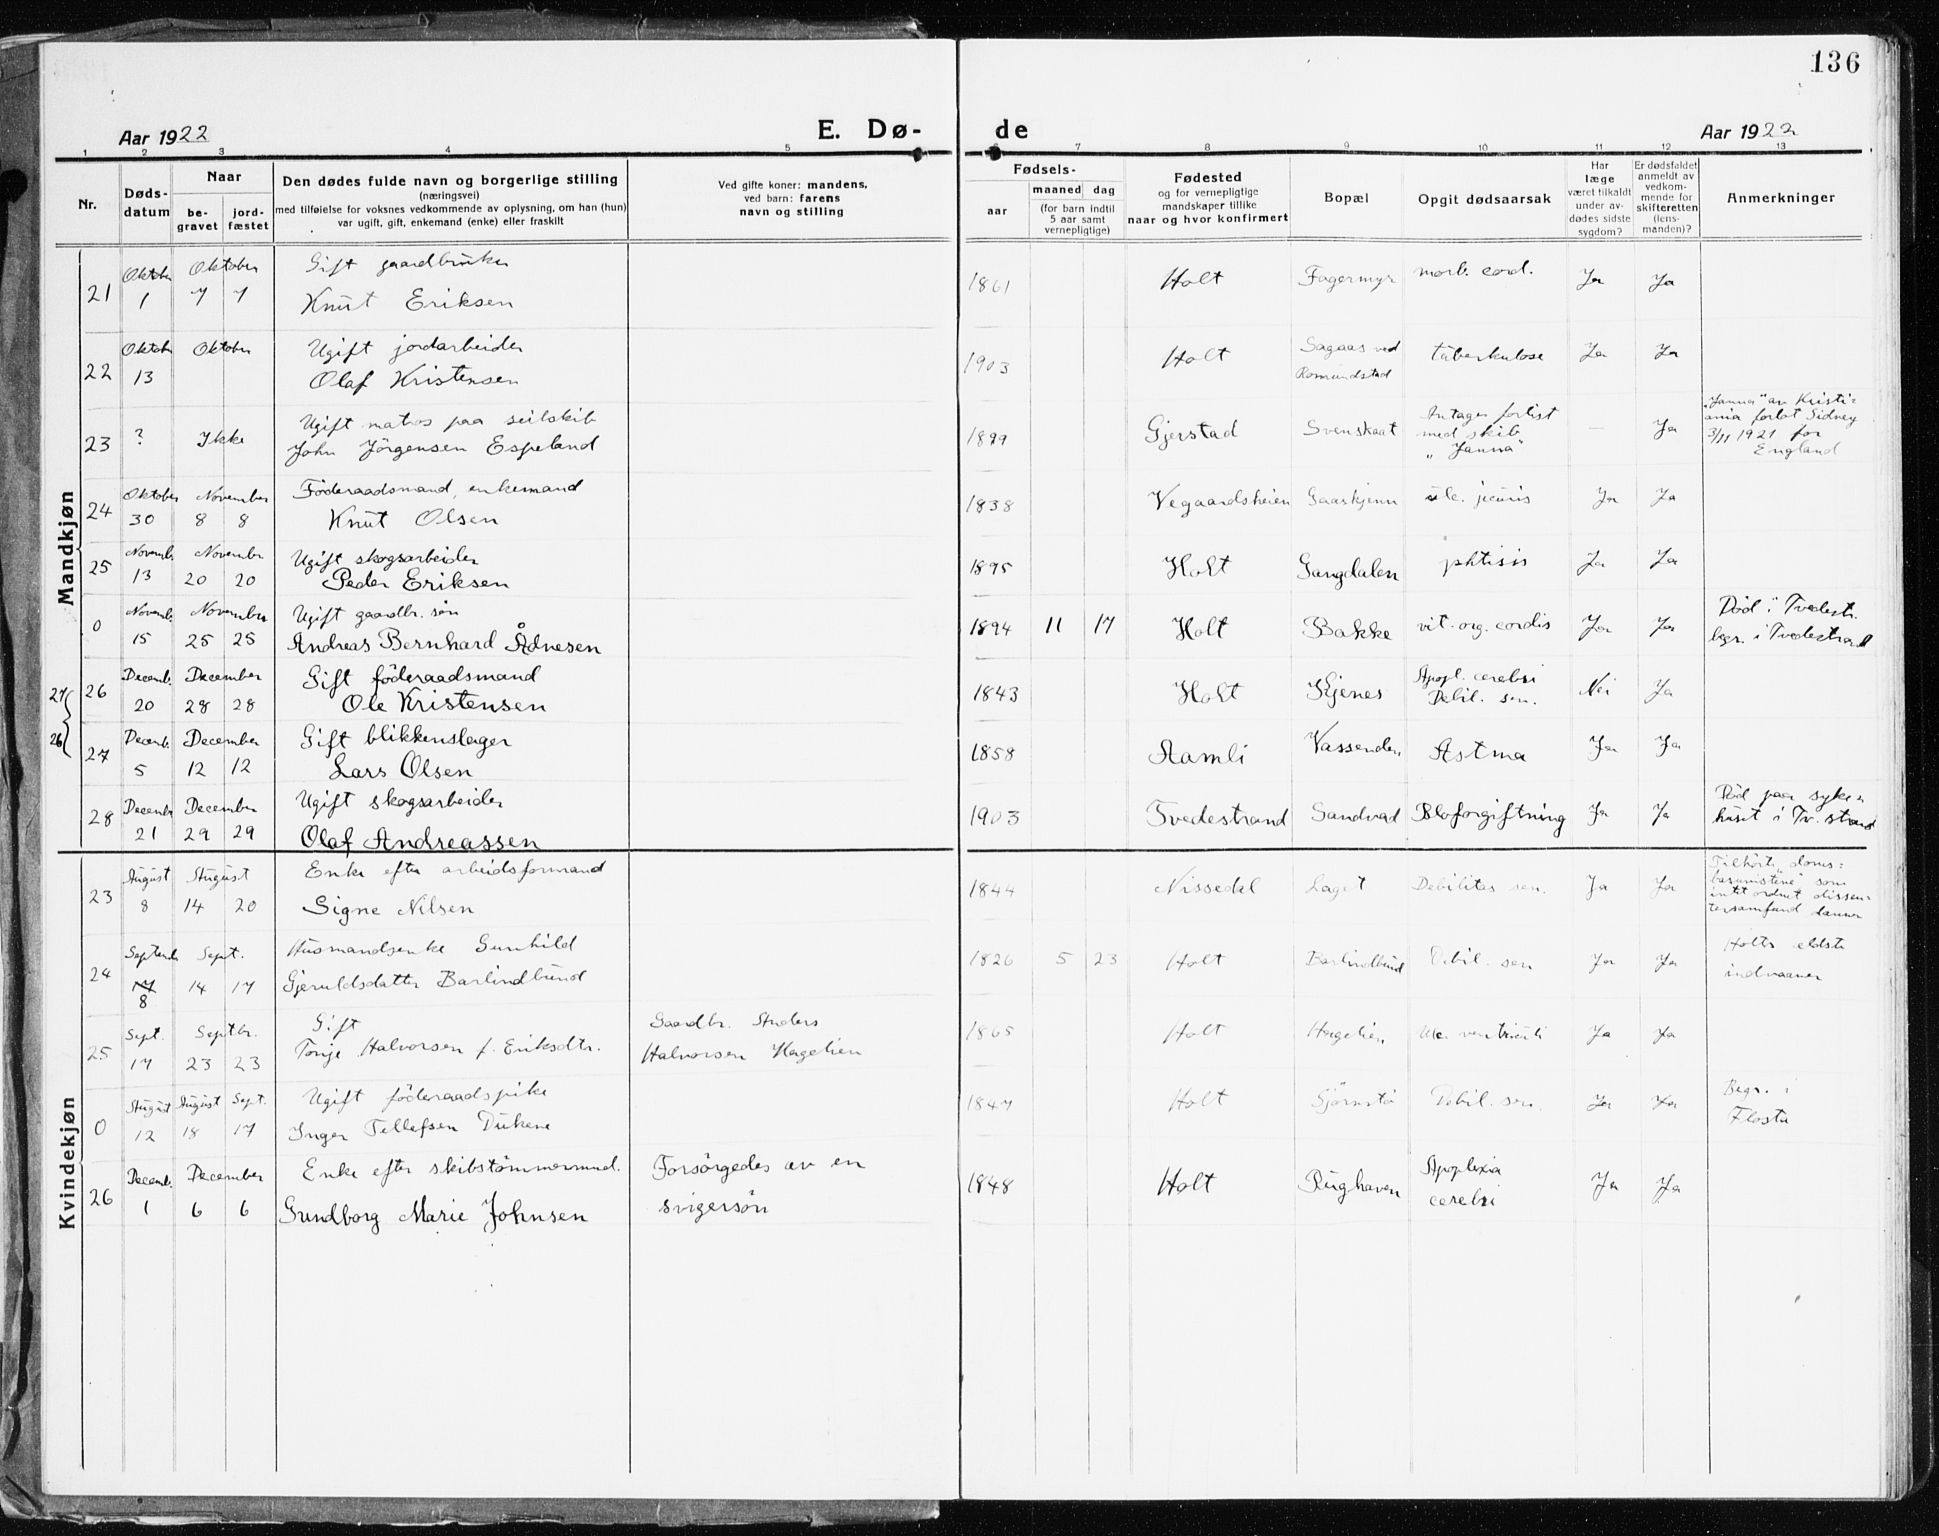 136
Aar 1922
E. Dø-
de
Aar 1922
1 2 3 4 5 6 7 8 9 10 11 12 13
Nr.
Døds-
datum
Naar
be-
gravet
jord-
fæstet
Den dødes fulde navn og borgerlige stilling
(næringsvei)
med tilføielse for voksnes vedkommende av oplysning, om han (hun)
var ugift, gift, enkemand (enke) eller fraskilt
Ved gifte koner: mandens,
ved barn: farens
navn og stilling
Fødsels-
aar
maaned dag
(for barn indtil
5 aar samt
vernepligtige)
Fødested
og for vernepligtige
mandskaper tillike
naar og hvor konfirmert
Bopæl
Opgit dødsaarsak
Har
læge
været tilkaldt
under av-
dødes sidste
sygdom?
Er dødsfaldet
anmeldt av
vedkom-
mende for
skifteretten
(lens-
manden)?
Anmerkninger
Mandkjøn
21 Oktober Oktober Gift gaardbruker
1 7 7 Knut Eriksen
1861 Holt Fagermyr morb. cord. Ja Ja
22 Oktober Oktober Ugift jordarbeider
13 Olaf Kristensen
1903 Holt Sagaas ved
Romundstad tuberkulose Ja Ja
23 ? Ikke Ugift matros paa seilskib
John Jörgensen Espeland
1899 Gjerstad Svenskaat Antages forlist
med skib
"Janna" — Ja
"Janna" av Kristi=
ania forlot Sidney
3/11 1921 for
England
24 Oktober November Föderaadsmand, enkemand
30 8 8 Knut Olsen
1838 Vegaardsheien Gaaskjenn Ja Ja
25 Novemb. November Ugift skogsarbeider
13 20 20 Peder Eriksen
1895 Holt Gangdalen phtisis Ja Ja
0 Novemb. November Ugift gaardbr. sön
15 25 25 Andreas Bernhard Ådnesen
1894 11 17 Holt Bakke vit. org. cordis Ja Ja
Död i Tvedestr.
begr. i Tvedestrand
27
26 Decemb. December Gift föderaadsmand
20 28 28 Ole Kristensen
1843 Holt Kjenes Apopl. cerebri
Debil. sen. Nei Ja
26
27 Decemb. December Gift blikkenslager
5 12 12 Lars Olsen
1858 Aamli Vassenden Astma Ja Ja
28 Decembr December Ugift skogsarbeider
21 29 29 Olaf Andreassen
1903 Tvedestrand Sandvad Bloforgiftning Ja Ja
Död paa syke=
huset i Tv.strand
Kvindekjøn
23 August August Enke efter arbeidsformand
8 14 20 Signe Nilsen
1844 Nissedal Laget Debilitas sen. Ja Ja
Tilhörte doms=
som
intt ordnet dissen=
tersamfund danner
24 Septemb. Sept. Husmandsenke Gunhild
17
8 14 17 Gjeruldsdatter Barlindbund
1826 5 23 Holt Barlindbund Debil. sen Ja Ja
Holts eldste
indvaaner
25 Sept. Septbr. Gift
17 23 23 Tonje Halvorsen f. Eriksdtr.
Gaardbr. Anders
Halvorsen Hagelien
1865 Holt Hagelien Ulc. ventriculi Ja Ja
0 August August Sept. Ugift föderaadspike
12 18 17 Inger Tellefsen Dukene
1847 Holt Sjörnstö Debil. sen. Ja Ja
Begr. i
Flosta
26 Decemb. December Enke efter skibstömmermand.
1 6 6 Gundborg Marie Johnsen
Forsörgedes av en
svigersön
1848 Holt Rughaven Apoplexia
cerebri Ja Ja